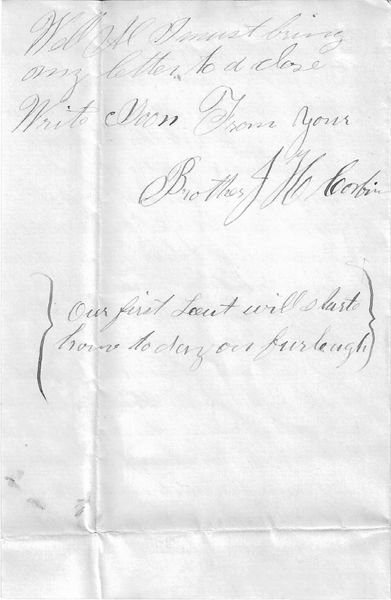 Well Al I must bring
my letter to a close
Write Soon From your
Brother J H Corbin
Our first Leut will starte
home to day on furlough